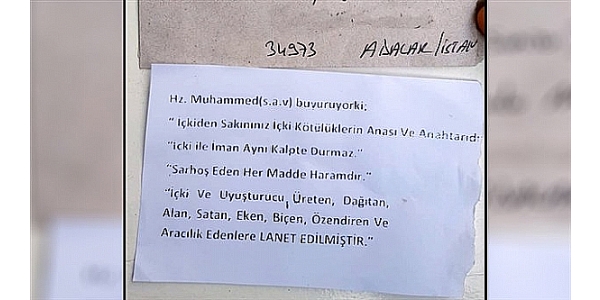 34973 ADALAR/İSTAN
Hz. Muhammed(s.a.v) buyuruyorki;
" İçkiden Sakınınız İçki Kötülüklerin Anası Ve Anahtarıdı
"İcki ile İman Aynı Kalpte Durmaz."
"Sarhoş Eden Her Madde Haramdır."
"İçki Ve Uyuşturucu Üreten, Dağıtan,
Alan, Satan, Eken, Biçen, Özendiren Ve
Aracılık Edenlere LANET EDİLMİŞTİR."